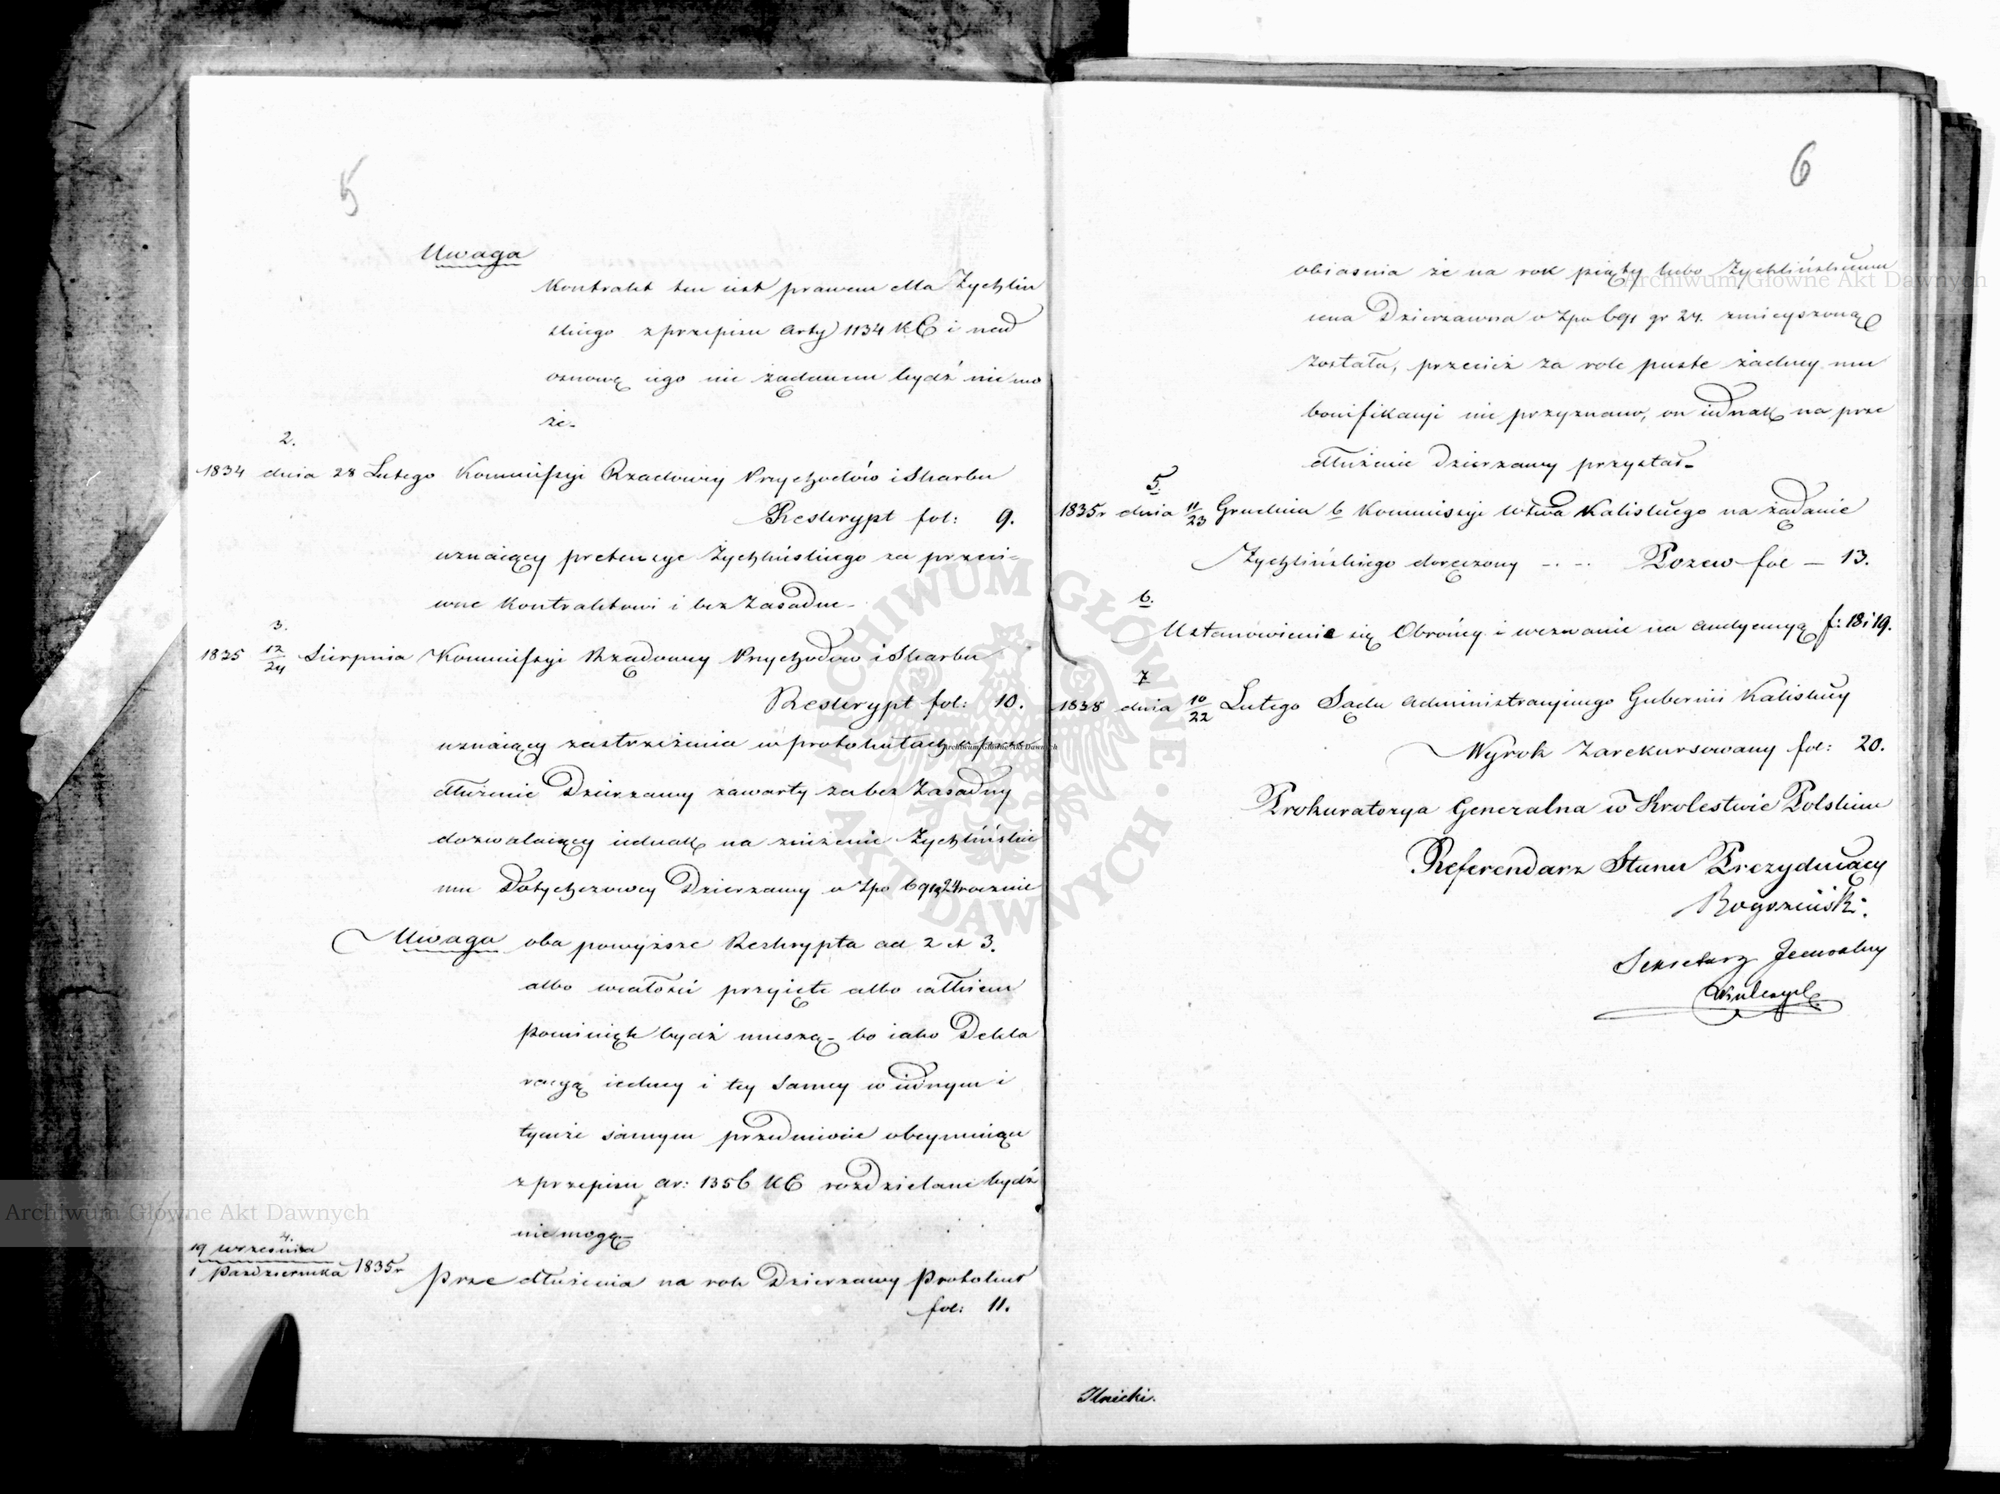 5
Uwaga
Kontrakt ten iest prawem dla Zychliń
skiego z przepisu Arty 1134 KC i nad
osnowę iego nic żądanem bydź nie mo
że.
2.
1834 dnia 28 Lutego Kommissyi Rządowey Przychodów i Skarbu
Reskrypt fol: 9.
uznaiący pretensye Żychlińskiego za przeci-
wne Kontraktowi i bez zasadne.
3.
1835 12/24 Sierpnia Kommissyi Rządowey Przychodów i Skarbu
Reskrypt fol: 10.
uznaiący zastrzeżenia w protokułach o prze
dłużenie Dzierzawy zawarty za bez zasadny
dozwalaiący iednak na zniżenie Zychlińskie
mu Dotychczowey Dzierzawy o Zpo 691 g 24 rocznie
Uwaga oba powyższe Reskrypta ad 2 et 3.
albo w całości przyięte albo całkiem
pominięte bydź muszą – bo iako Dekla
racyą iedney i tey samey w iednym i
tymże samym przedmiocie obeymuiące
z przepisu ar: 1356 KC rozdzielane bydź
nie mogą –
4.
19 września
1 Października 1835 r Prze dłużenia na rok Dzierzawy Protokuł
fol: 11.
6
obiasnia że na rok piąty lubo Zychlińskiemu
cena Dzierzawna o Zpo 691 gr 24. zmieyszoną
została, przecież za role puste żadney mu
bonifikacyi nie przyznano, on iednak na prze
dłużenie Dzierzawy przystał –
5.
1835 r dnia 11/23 Grudnia b Kommissyi Wtwa Kaliskiego na żądanie
Zychlińskiego doręczony - . - . Pozew fol – 13.
6.
Ustanowienie się Obrońcy i wezwanie na audyencyą f: 18 i 19.
7
1838 dnia 10/22 Lutego Sądu Administracyinego Gubernii Kaliskiey
Wyrok Zarekursowany fol: 20.
Prokuratorya Generalna w Krolestwie Polskim
Referendarz Stanu Prezyduiący
Rogoziński.
Sekretarz Jeneralny
Ilnicki.
Archiwum Główne Akt Dawnych
Archiwum Główne Akt Dawnych
Archiwum Główne Akt Dawnych
ARCHIWUM GŁÓWNE · AKT DAWNYCH ·